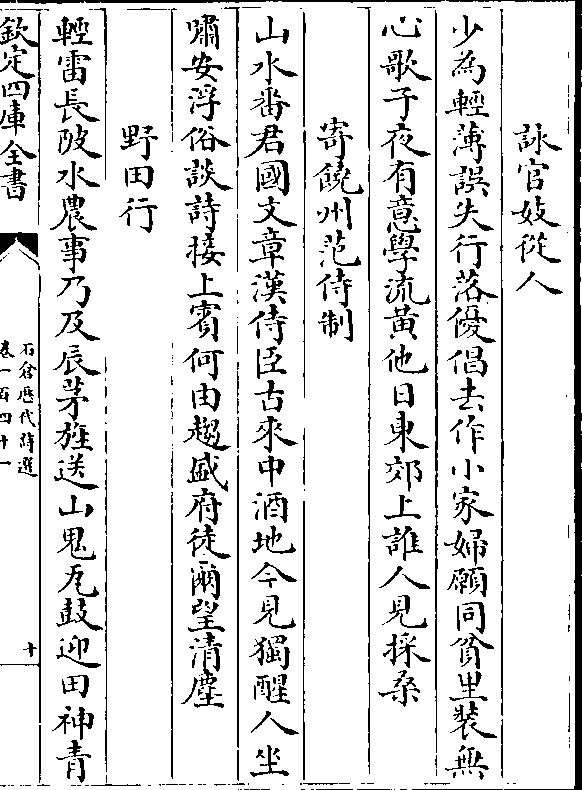 詠官妓從人
少為輕薄誤失行落優倡去作小家婦願同貧里裝無
心歌子夜有意學流黄他日東郊上誰人見採桑
寄饒州范侍制
山水番君國文章漢侍臣古來中酒地今見獨醒人坐
嘯安浮俗談詩接上賓何由趨盛府徒爾望清塵
野田行
輕雷長陂水農事乃及辰茅旌送山鬼瓦鼓迎田神青
欽定四庫全書
石倉歴代詩選
卷一百四十一
十